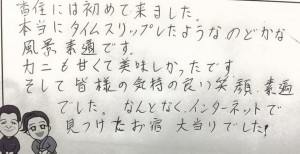 香住には初めて来ました。
本当にタイムスリップしたようなのどかな
風景、素適です。
カニも甘くて美味しかったです
そして皆様の気持の良い笑顔、素適
でした。なんとなく、インターネットで
見つけたお宿 大当りでした!